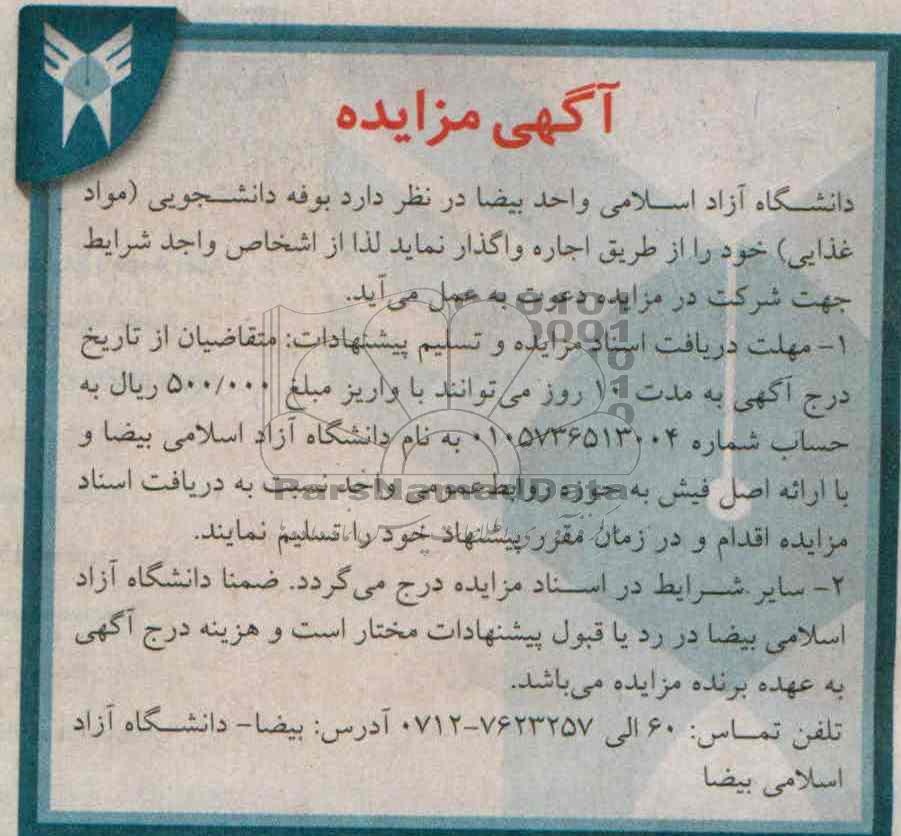 آگهی مزایده
دانشگاه آزاد اسلامی واحد بیضا در نظر دارد بوفه دانشجویی (مواد
غذایی) خود را از طریق اجاره واگذار نماید لذا از اشخاص واجد شرایط
جهت شرکت در مزایده دعوت به عمل می‌آید.
۱- مهلت دریافت اسناد مزایده و تسلیم پیشنهادات: متقاضیان از تاریخ
درج آگهی به مدت ۱۰ روز می‌توانند با واریز مبلغ ۵۰۰/۰۰۰ ریال به
حساب شماره ۰۱۰۵۷۳۶۵۱۳۰۰۴ به نام دانشگاه آزاد اسلامی بیضا و
با ارائه اصل فیش به حوزه روابط عمومی واحد نسبت به دریافت اسناد
مزایده اقدام و در زمان مقرر پیشنهاد خود را تسلیم نمایند.
۲- سایر شرایط در اسناد مزایده درج می‌گردد. ضمنا دانشگاه آزاد
اسلامی بیضا در رد یا قبول پیشنهادات مختار است و هزینه درج آگهی
به عهده برنده مزایده می‌باشد.
تلفن تماس: ۶۰ الی ۷۶۲۳۲۵۷-۰۷۱۲ آدرس: بیضا- دانشگاه آزاد
اسلامی بیضا
ParsNamadData